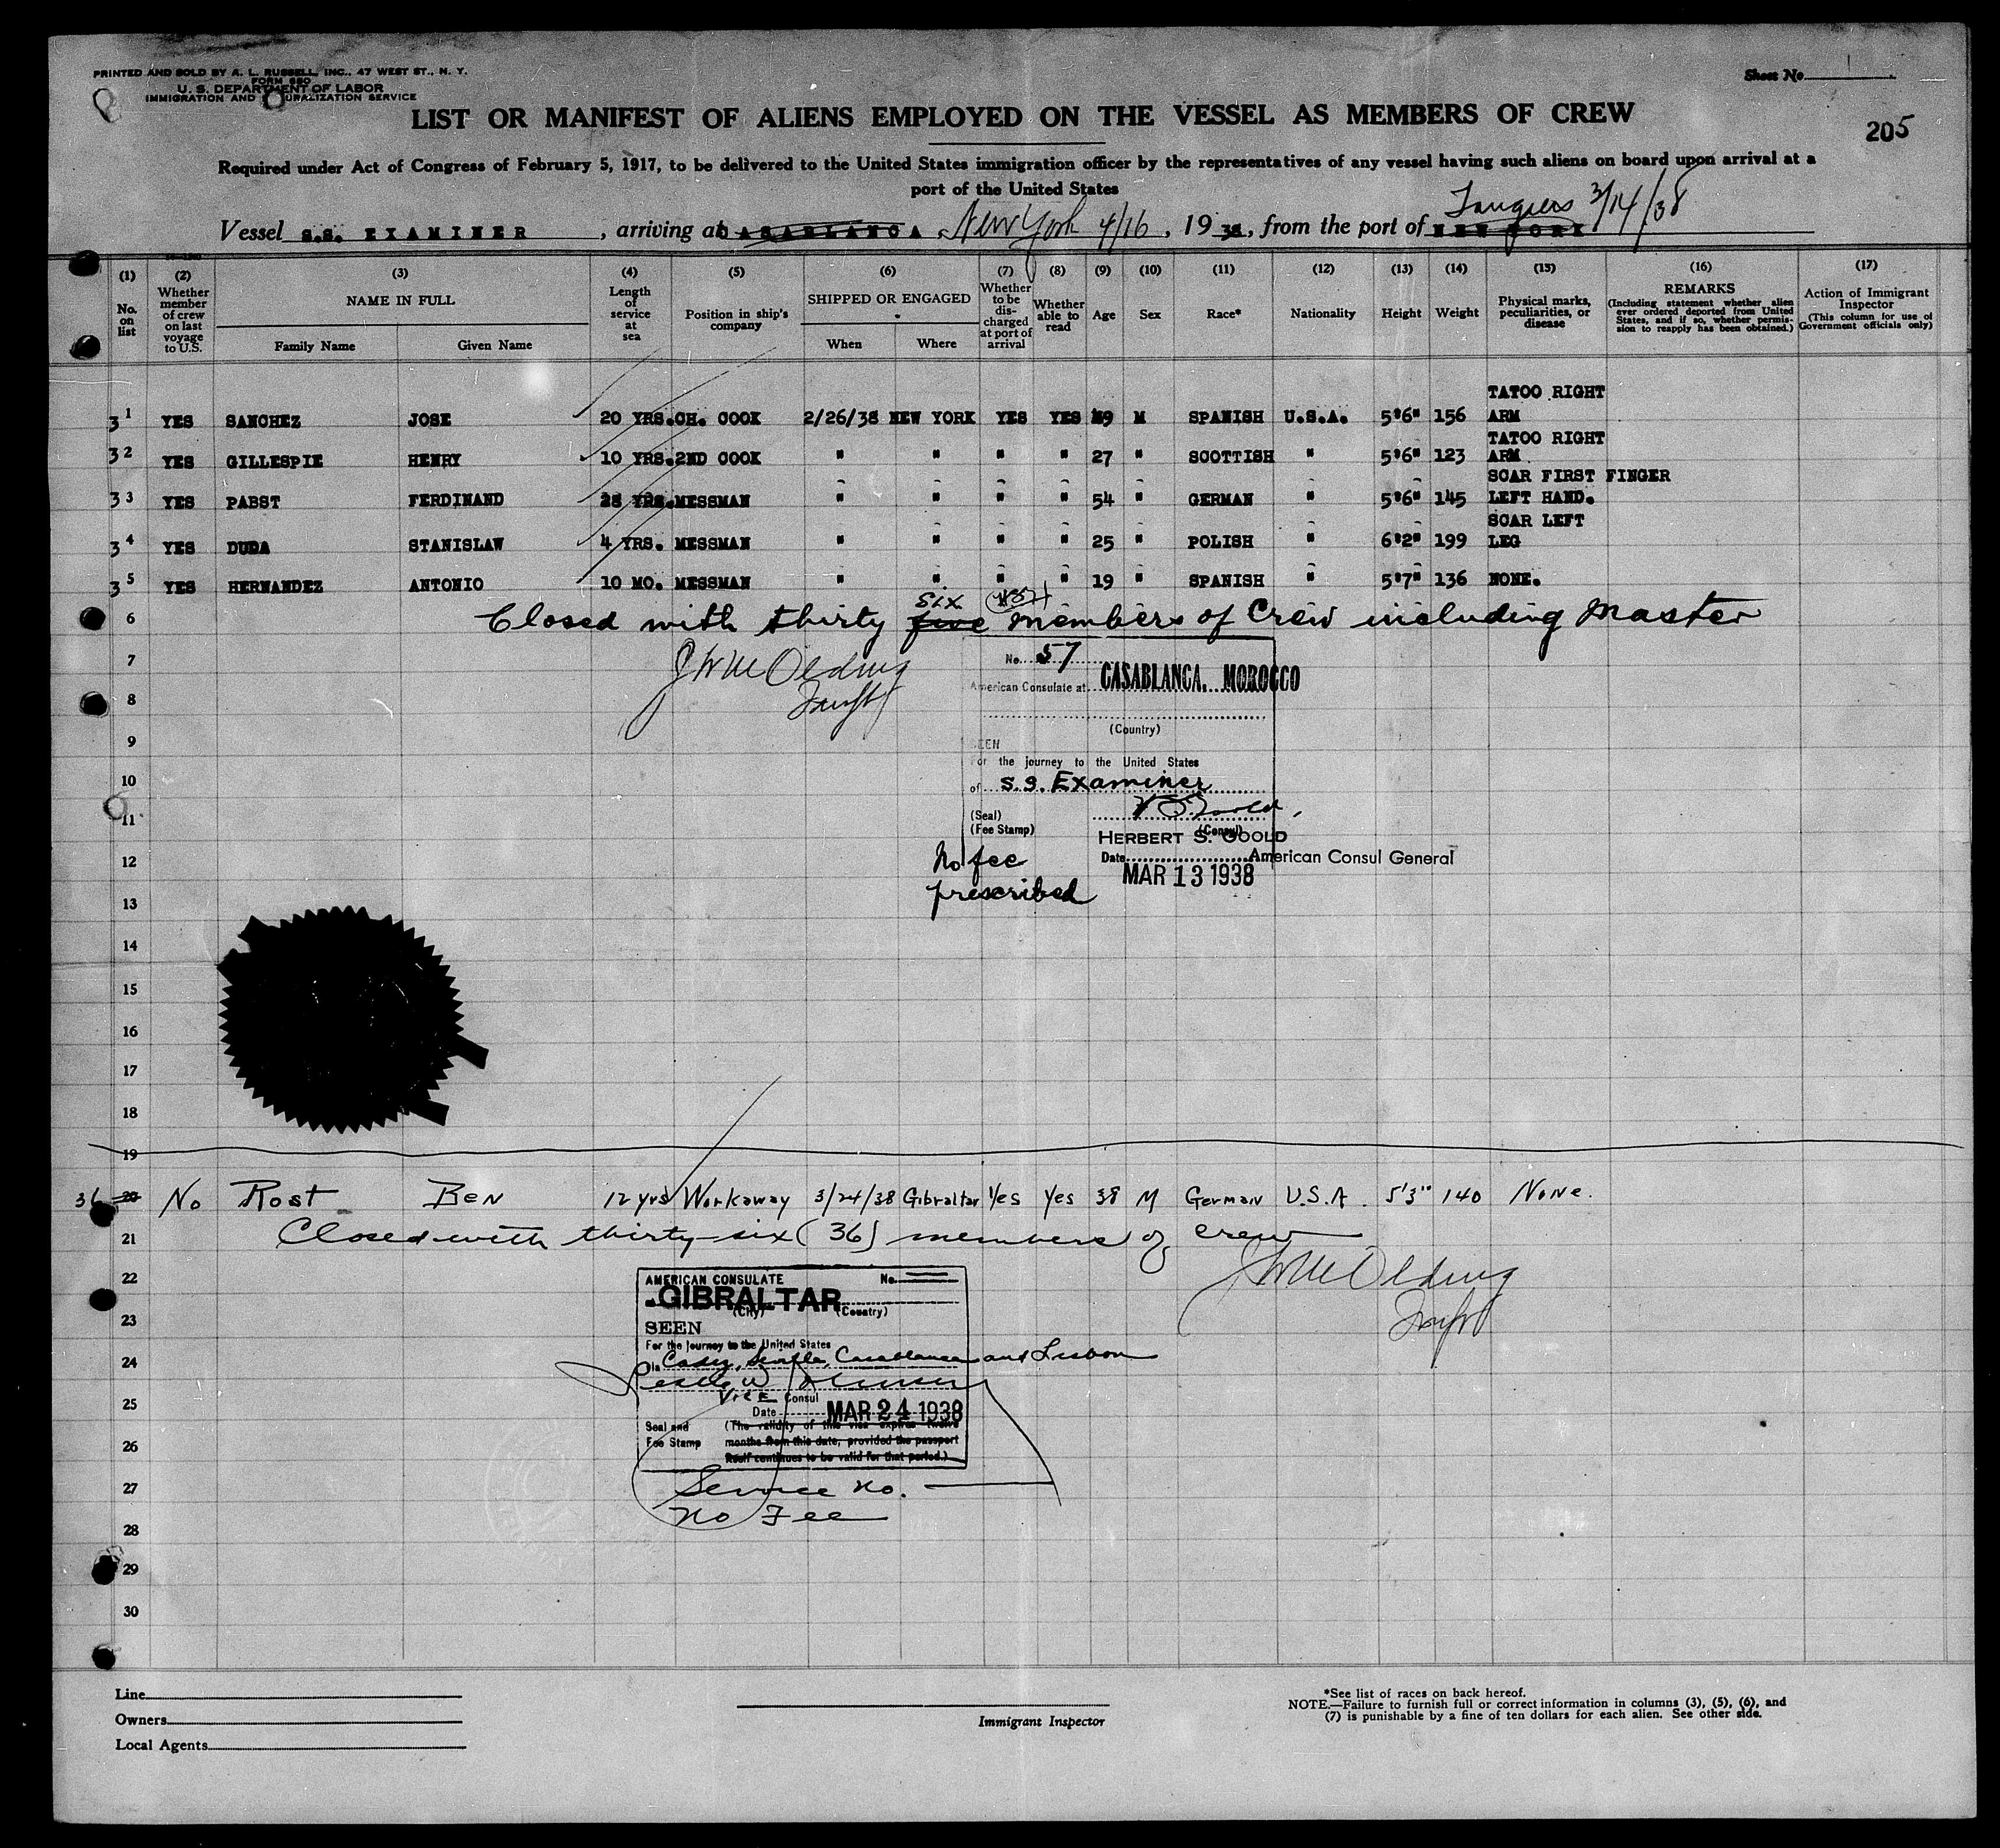 PRINTED AND SOLD BY A. L. RUSSELL, INC., 47 WEST ST., N. Y.
FORM 680
U. S. DEPARTMENT OF LABOR
IMMIGRATION AND NATURALIZATION SERVICE
Sheet No.
LIST OR MANIFEST OF ALIENS EMPLOYED ON THE VESSEL AS MEMBERS OF CREW
205
Required under Act of Congress of February 5, 1917, to be delivered to the United States immigration officer by the representatives of any vessel having such aliens on board upon arrival at a
port of the United States
Vessel S.S. EXAMINER, arriving at CASABLANCA, New York 4/16, 1938, from the port of NEW YORK Tangiers 3/14/38
(1) (2) (3) (4) (5) (6) (7) (8) (9) (10) (11) (12) (13) (14) (15) (16) (17)
No. on list
Whether member of crew on last voyage to U.S.
NAME IN FULL
Family Name Given Name
Length of service at sea
Position in ship's company
SHIPPED OR ENGAGED
When Where
Whether to be discharged at port of arrival
Whether able to read
Age
Sex
Race*
Nationality
Height
Weight
Physical marks, peculiarities, or disease
REMARKS
(Including statement whether alien ever ordered deported from United States, and if so, whether permission to reapply has been obtained.)
Action of Immigrant Inspector
(This column for use of Government officials only)
TATOO RIGHT
31 YES SANCHEZ JOSE 20 YRS. CH. COOK 2/26/38 NEW YORK YES YES 9 M SPANISH U.S.A. 5'6" 156 ARM
TATOO RIGHT
32 YES GILLESPIE HENRY 10 YRS. 2ND COOK " " " " 27 " SCOTTISH " 5'6" 123 ARM
SCAR FIRST FINGER
33 YES PABST FERDINAND 28 YRS. MESSMAN " " " " 54 " GERMAN " 5'6" 145 LEFT HAND.
SCAR LEFT
34 YES DUDA STANISLAW 4 YRS. MESSMAN " " " " 25 " POLISH " 6'2" 199 LEG
35 YES HERNANDEZ ANTONIO 10 MO. MESSMAN " " " " 19 " SPANISH " 5'7" 136 NONE.
six
6 Closed with thirty five members of Crew including Master
7
No. 57
8
American Consulate at CASABLANCA, MOROCCO
9
(Country)
SEEN
For the journey to the United States
10
of S.S. Examiner
11
(Seal)
(Fee Stamp)
(Consul)
HERBERT S. GOOLD
12
No fee Date American Consul General
prescribed MAR 13 1938
13
14
15
16
17
18
19
36 20 No Rost Ben 12 yrs Workaway 3/24/38 Gibraltar Yes Yes 38 M German U.S.A. 5'3" 140 None.
21 Closed with thirty-six (36) members of crew
22
AMERICAN CONSULATE No.
GIBRALTAR
(City) (Country)
23
SEEN
For the journey to the United States
24
via Cadiz, Seville, Casablanca and Lisbon
25
Vice Consul
Date MAR 24 1938
Seal and Fee Stamp
26
(The validity of this visa expires twelve
months from this date, provided the passport
itself continues to be valid for that period.)
27
Service No.
No Fee
28
29
30
Line
Owners
Local Agents
Immigrant Inspector
*See list of races on back hereof.
NOTE.—Failure to furnish full or correct information in columns (3), (5), (6), and
(7) is punishable by a fine of ten dollars for each alien. See other side.